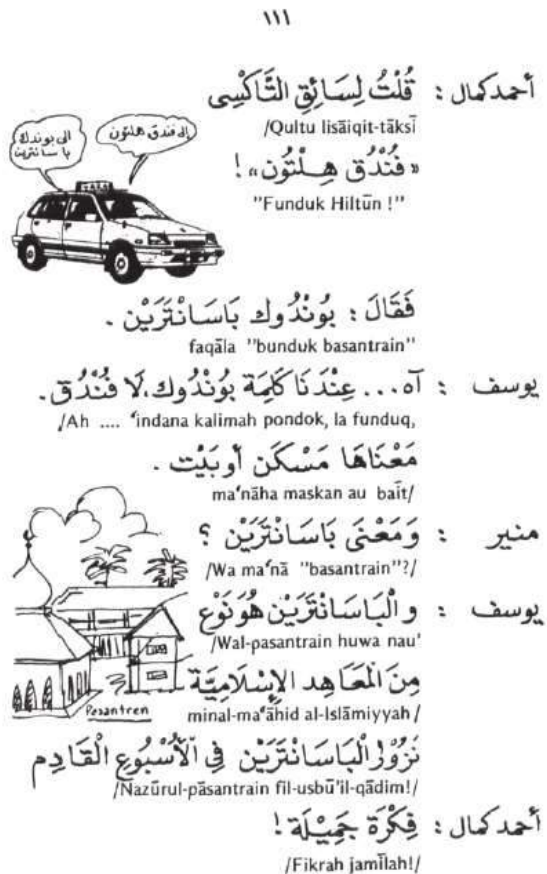 ١١١
أحمد كمال : قُلْتُ لِسَائِقِ التَّاكْسِى
/Qultu lisāiqit-tāksī
« فُنْدُق هِلْتُون» !
"Funduk Hiltūn !"
إلى فندق هلتون
الى بوندك
باسانترين
TAXI
فَقَالَ : بُونْدُوك بَاسَانْتَرَيْن .
faqāla "bunduk basantrain"
يوسف : آه... عِنْدَنَا كَلِمَة بُونْدُوك، لَا فُنْدُق.
/Ah .... 'indana kalimah pondok, la funduq,
مَعْنَاهَا مَسْكَن أَوبَيْت .
ma'nāha maskan au bait/
منير : وَمَعْنَى بَاسَانْتَرَيْن ؟
/Wa ma'nā "basantrain"?/
يوسف : و الْبَاسَانْتَرَيْن هُوَ نَوْع
/Wal-pasantrain huwa nau'
مِنَ الْمَعَاهِد الإِسْلَامِيَّة
minal-ma'āhid al-Islāmiyyah /
Pesantren
نَزُوْرُ الْبَاسَانْتَرَيْن فِي الْأُسْبُوعِ الْقَادِم
/Nazūrul-pāsantrain fil-usbū'il-qādim!/
أحمد كمال : فِكْرَة جَمِيْلَة !
/Fikrah jamīlah!/